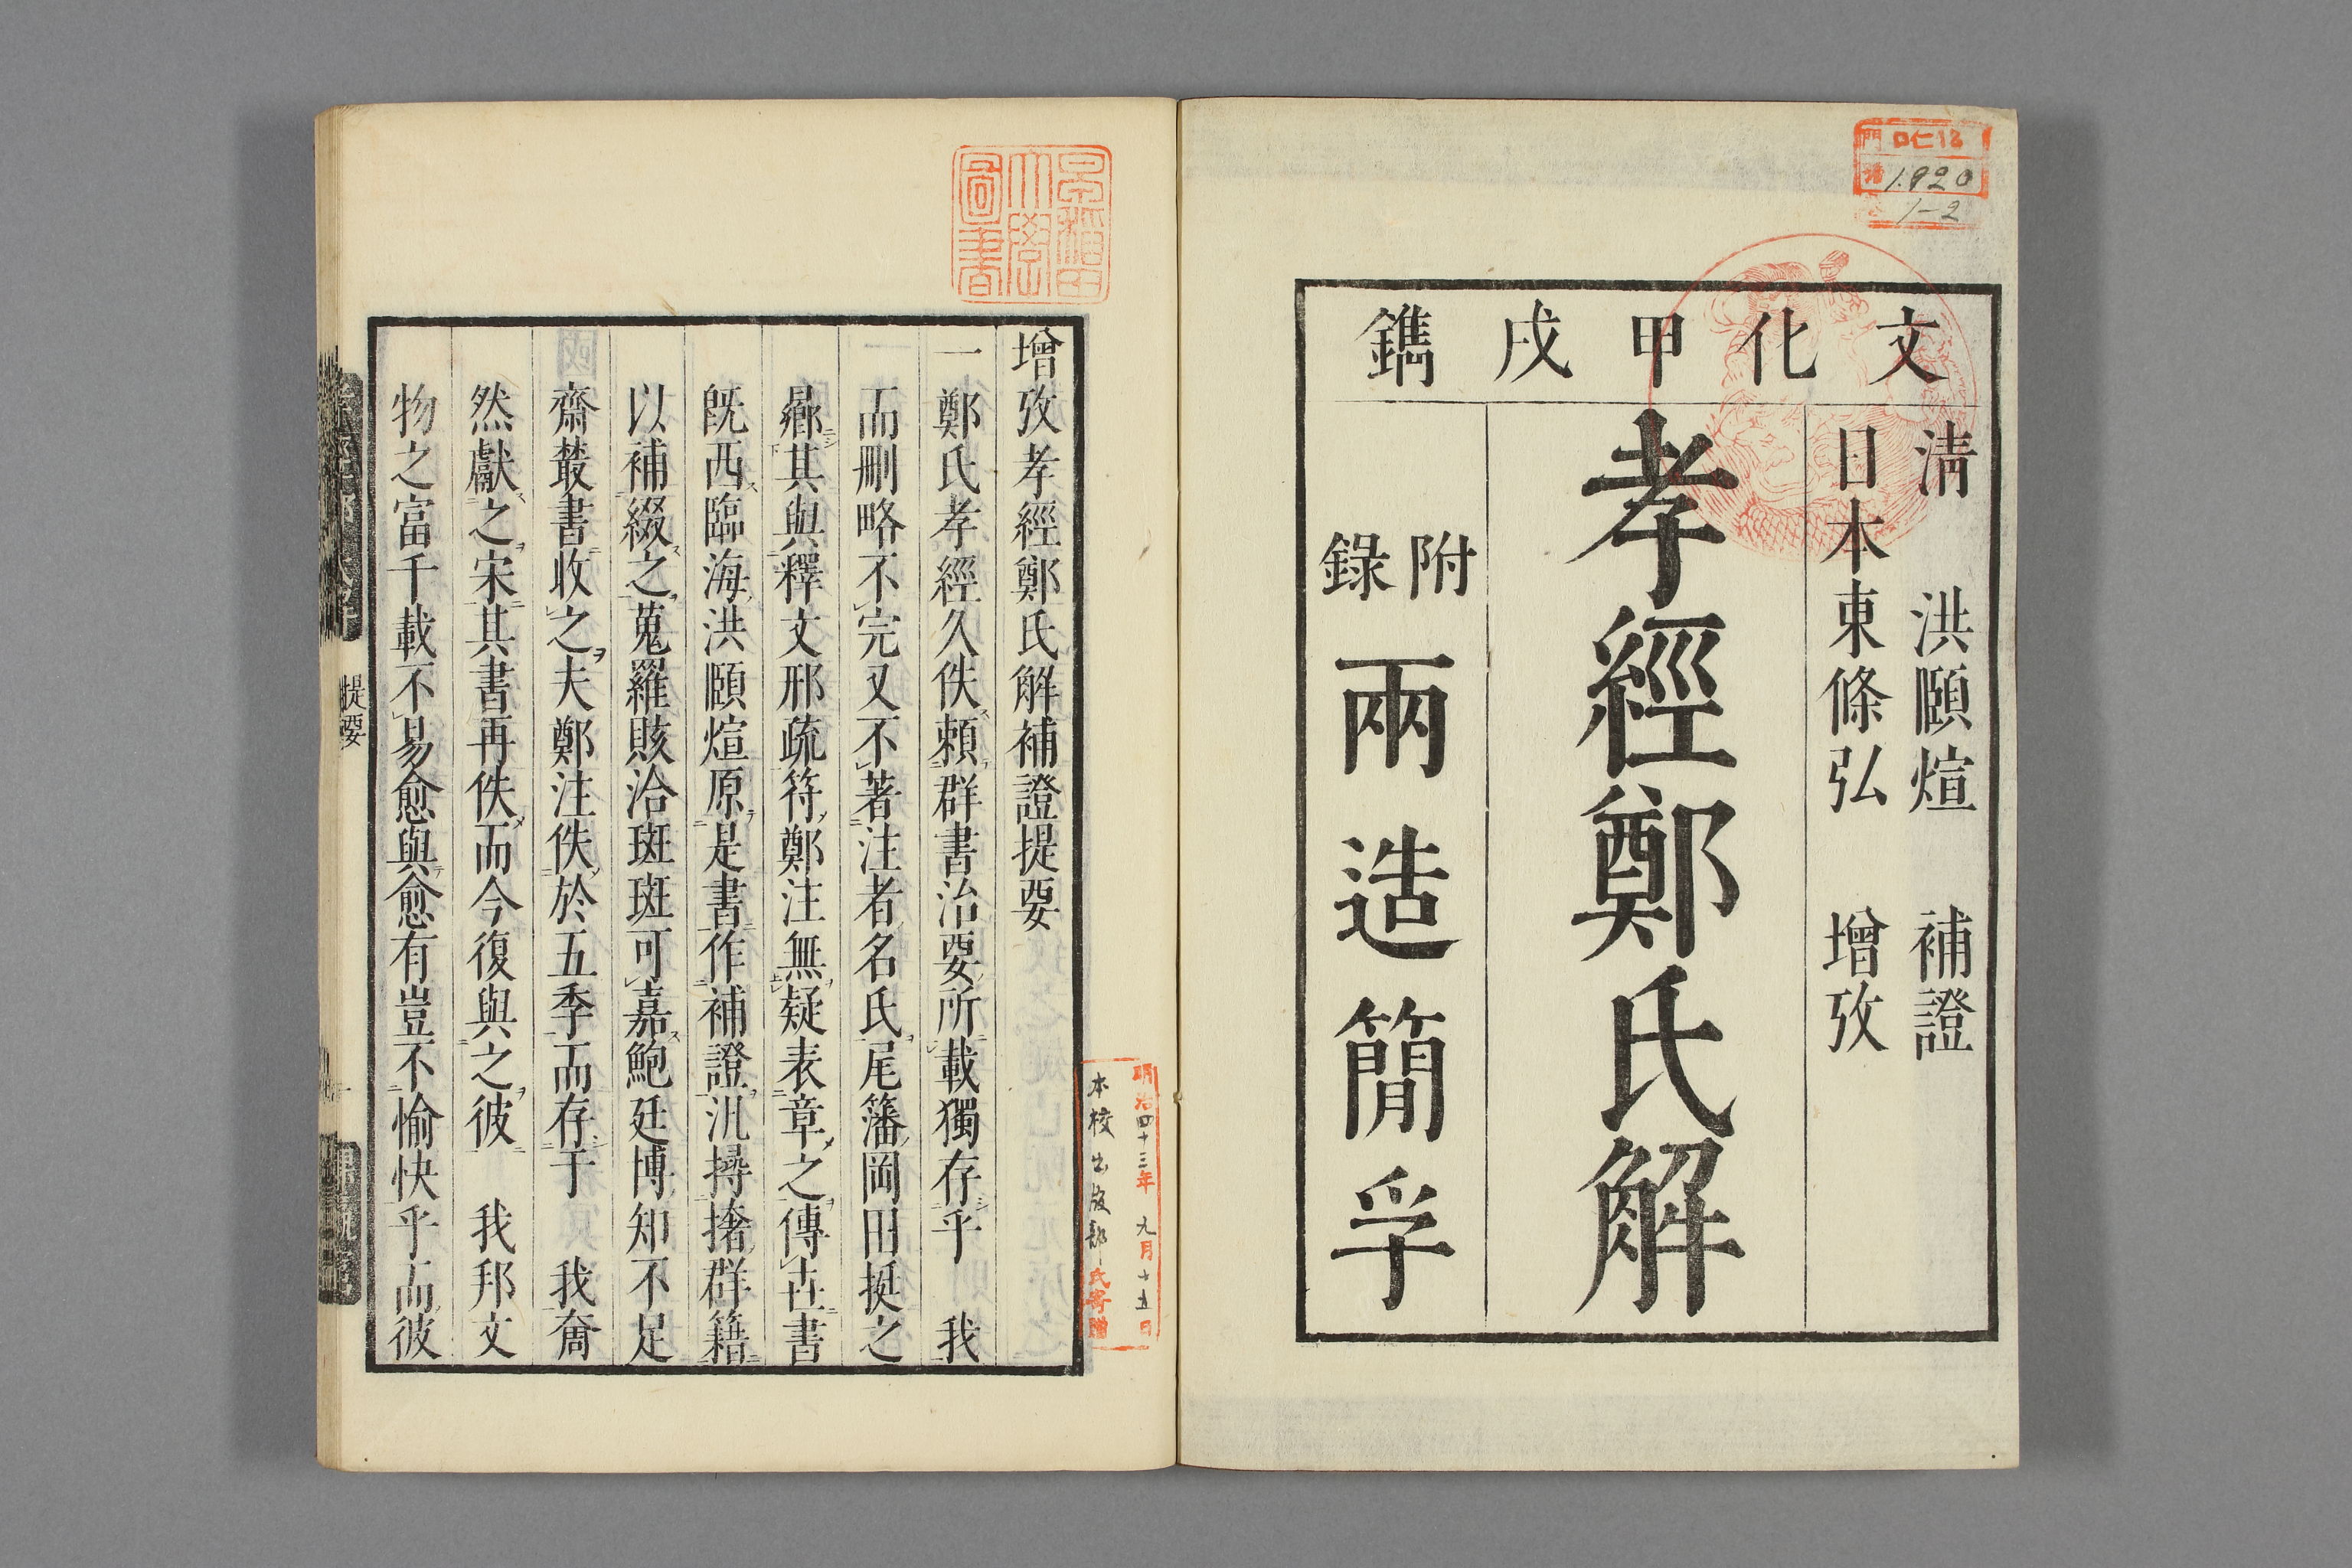 文化甲戌鐫
清 洪頤煊 補證
日本東條弘 增攷
孝經鄭氏解
附錄 兩造簡孚
門 ロ仁12
號 1920
1-2
早稲田
大學
圖書
明治四十三年九月十五日
本校出版部氏寄贈
增攷孝經鄭氏解補證提要
一鄭氏孝經久佚賴群書治要所載獨存乎 我
而刪略不完又不著注者名氏尾籓岡田挺之
㬎其與釋文邢疏符鄭注無疑表章之傳㐀書
旣西臨海洪頤煊原是書作補證汎撏撦群籍
以補綴之蒐羅賅洽斑斑可嘉鮑廷博知不足
齋叢書收之夫鄭注佚於五季而存于 我奝
然獻之宋其書再佚而今復與之彼 我邦文
物之富千載不易愈與愈有豈不愉快乎而彼
提要
一